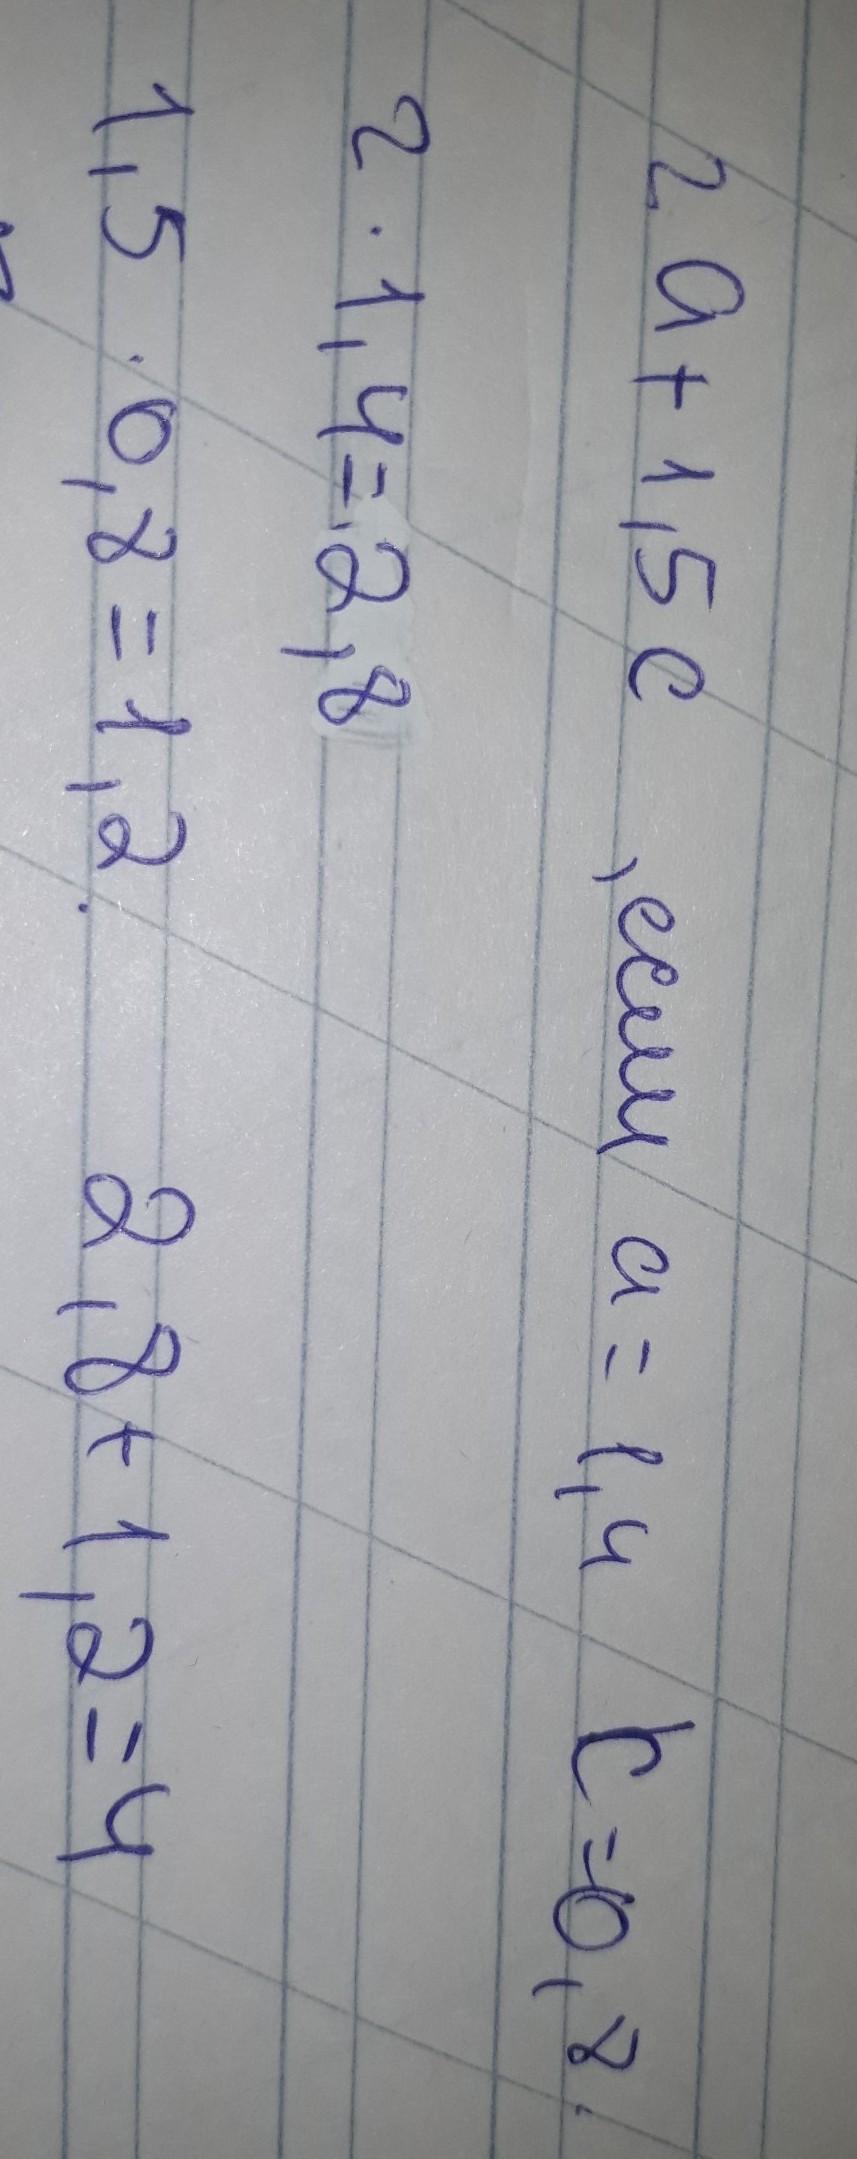 2a + 1,5c , если a = 1,4 c = 0,8.
2 · 1,4 = 2,8
1,5 · 0,8 = 1,2. 2,8 + 1,2 = 4